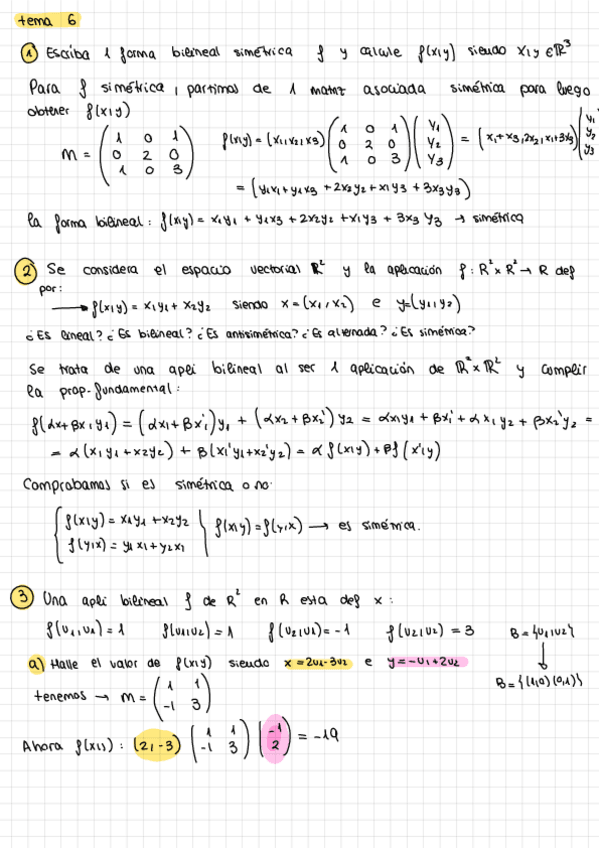 tema 6
1) Escriba 1 forma bilineal simétrica f y calcule f(x,y) siendo x,y ∈ ℝ³
Para f simétrica, partimos de 1 matriz asociada simétrica para luego
obtener f(x,y)
M = (1 0 1; 0 2 0; 1 0 3) f(x,y) = (x₁,x₂,x₃) (1 0 1; 0 2 0; 1 0 3) (y₁; y₂; y₃) = (x₁+x₃, 2x₂, x₁+3x₃) (y₁; y₂; y₃)
= (y₁x₁ + y₁x₃ + 2x₂y₂ + x₁y₃ + 3x₃y₃)
la forma bilineal: f(x,y) = x₁y₁ + y₁x₃ + 2x₂y₂ + x₁y₃ + 3x₃y₃ → simétrica
2) Se considera el espacio vectorial ℝ² y la aplicación f: R² x R² → R def
por:
→ f(x,y) = x₁y₁ + x₂y₂ siendo x = (x₁,x₂) e y = (y₁,y₂)
¿Es lineal? ¿Es bilineal? ¿Es antisimétrica? ¿Es alternada? ¿Es simétrica?
Se trata de una apli bilineal al ser 1 aplicación de ℝ² x ℝ² y cumplir
la prop. fundamental:
f(αx + βx, y₁) = (αx₁ + βx₁')y₁ + (αx₂ + βx₂')y₂ = αx₁y₁ + βx₁' + αx₁y₂ + βx₂'y₂ =
= α(x₁y₁ + x₂y₂) + β(x₁'y₁ + x₂'y₂) = αf(x,y) + βf(x',y)
Comprobamos si es simétrica o no.
{ f(x,y) = x₁y₁ + x₂y₂
f(y,x) = y₁x₁ + y₂x₂ } f(x,y) = f(y,x) → es simétrica.
3) Una apli bilineal f de R² en R esta def x:
f(u₁,u₁) = 1 f(u₁,u₂) = 1 f(u₂,u₁) = -1 f(u₂,u₂) = 3 B = {u₁,u₂}
a) Halle el valor de f(x,y) siendo x = 2u₁ - 3u₂ e y = -u₁ + 2u₂
↓
B = {(1,0)(0,1)}
tenemos → M = (1 1; -1 3)
Ahora f(x,y): (2,-3) (1 1; -1 3) (-1; 2) = -19